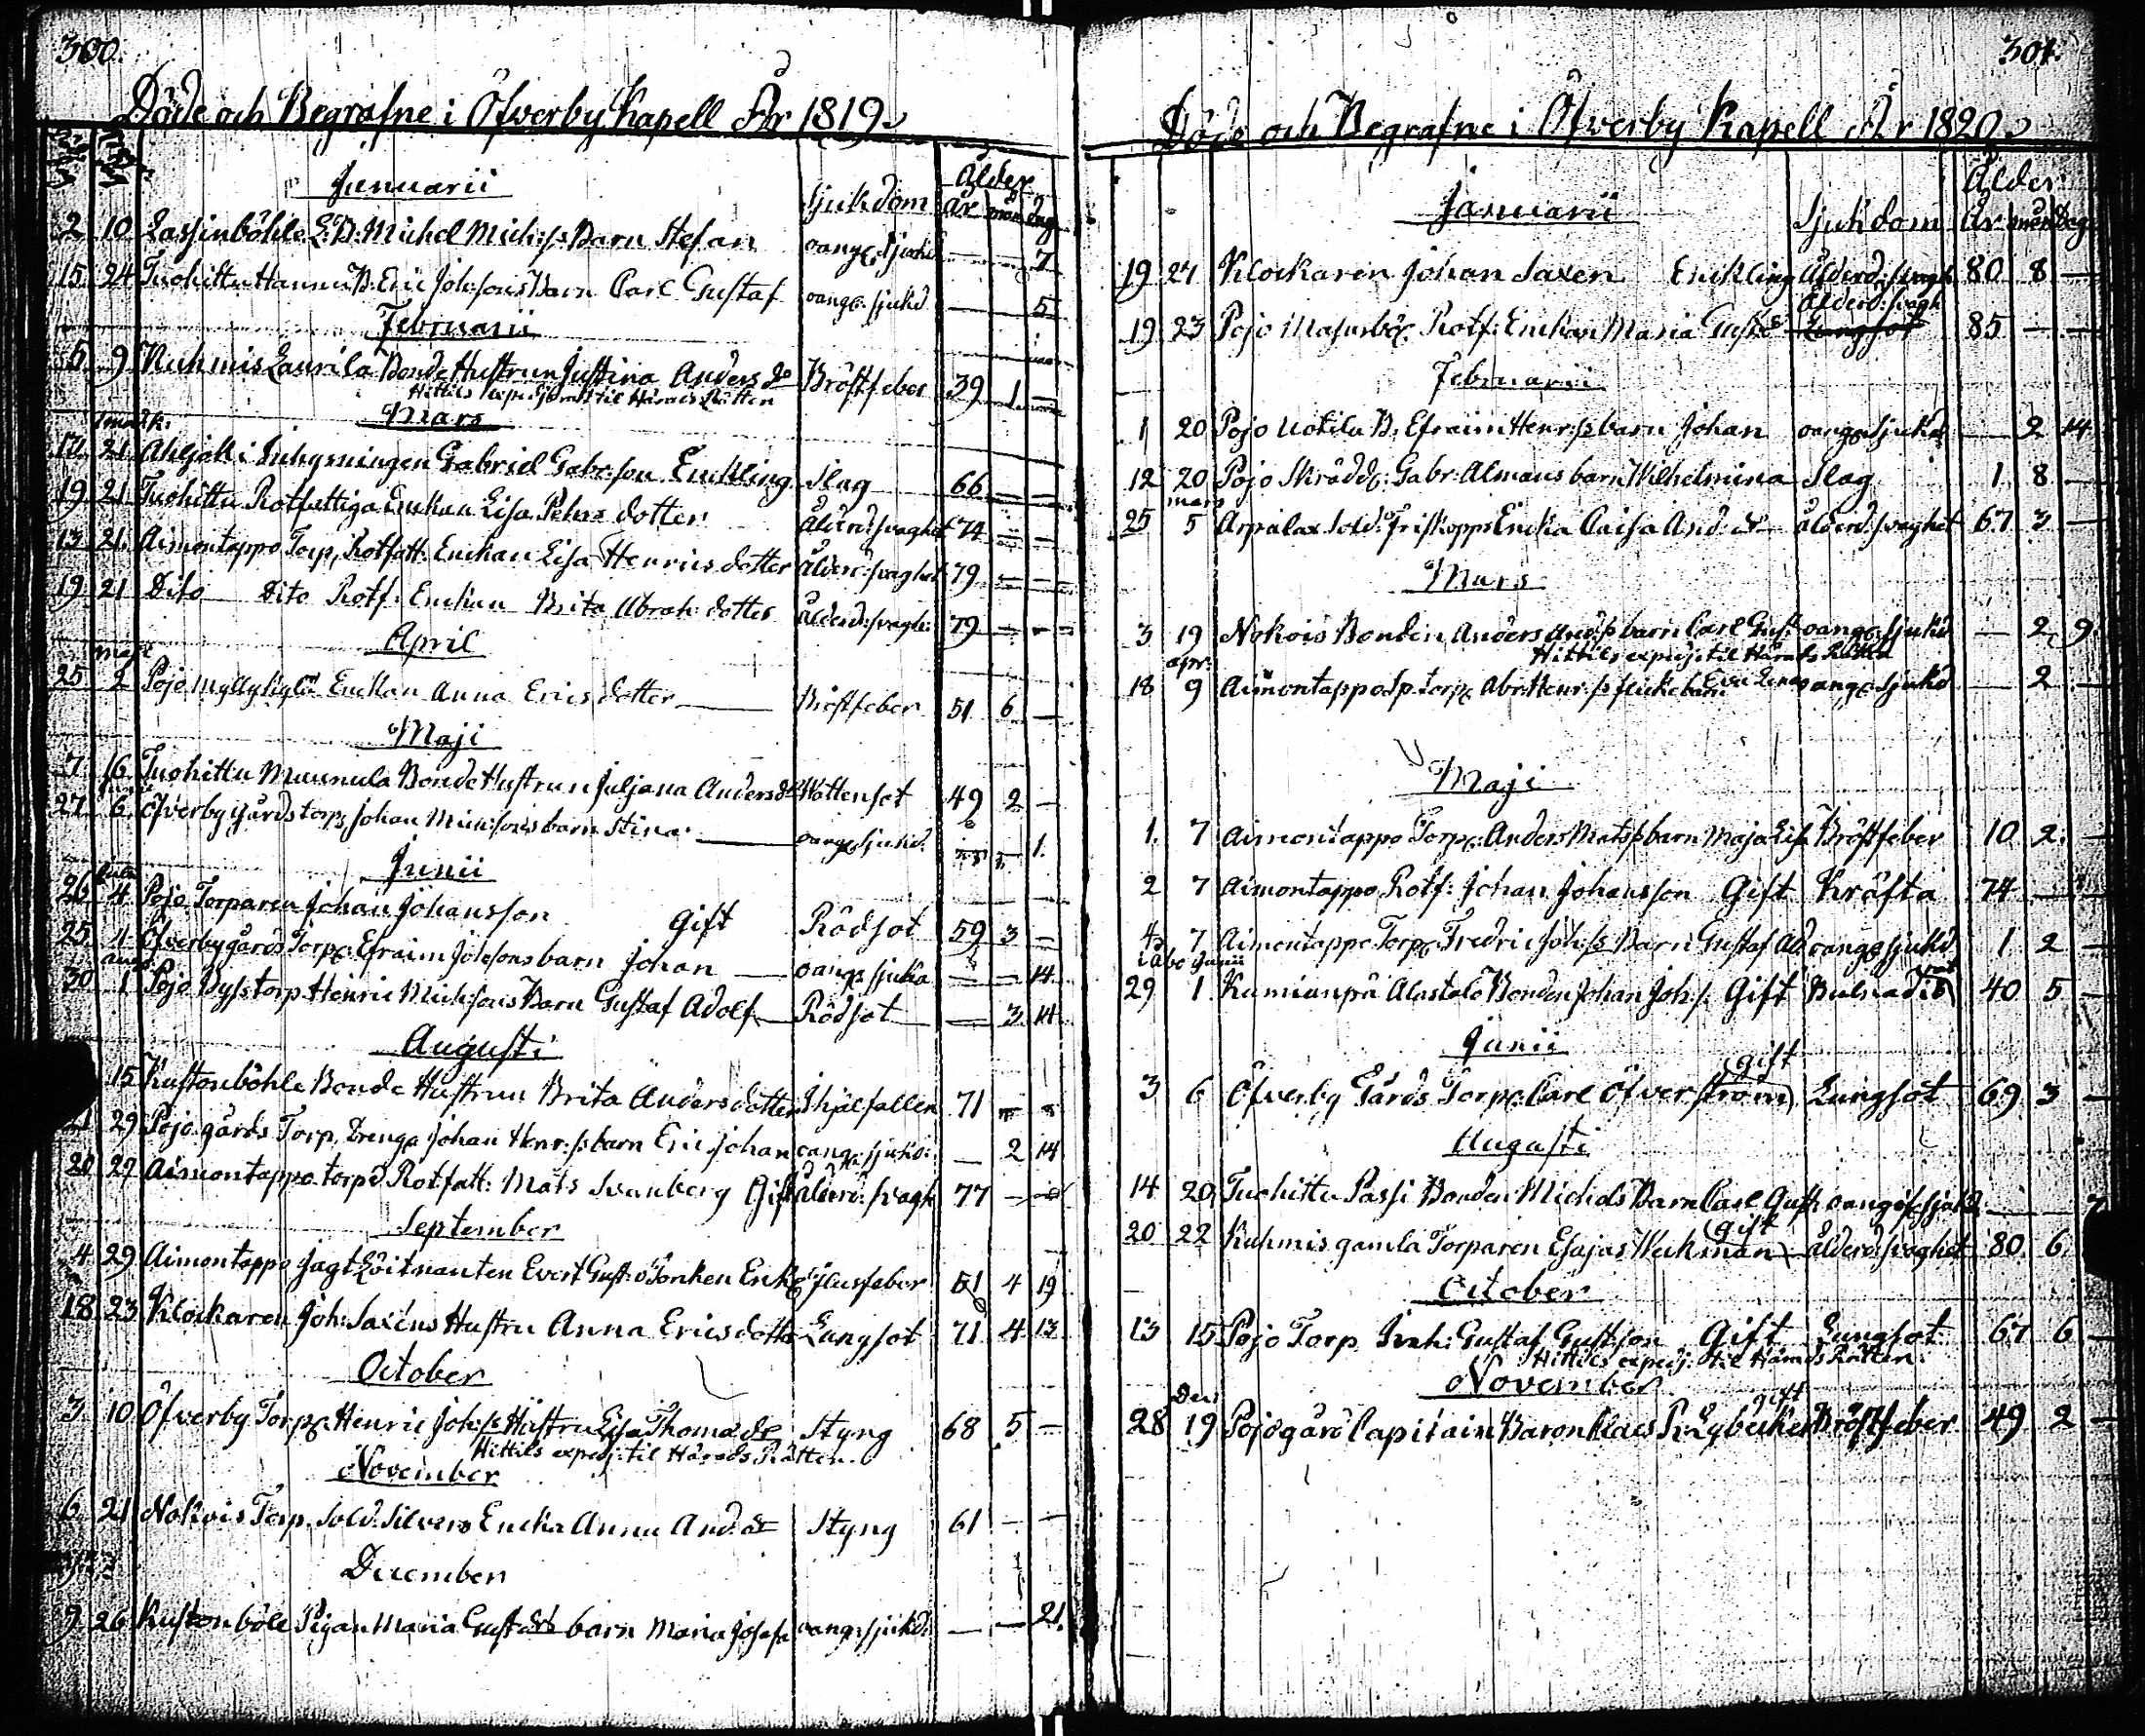 300.
Döde och Begrafne i Öfwerby Kapell År 1819.
Januarii
Sjukdom
Ålder
År mån dag
2 10 Lassinböhle B: Michel Mich:s Barn Stefan oang. Sjukd — — 7
15 24 Tuohittu Hannu B. Eric Joh:sons Barn Carl Gustaf oang. sjukd — — 5
Februarii
5 9 Kuhmis Laurila Bonde Hustrun Justina Anders dr Bröstfeber 39 1 —
Hittils expedierat til Härads Rätten
Mars
12 21 Ahljoki Inhysningen Gabriel Gabr:son Enckling Slag 66 — —
19 21 Tuohittu Rotfattiga Enckan Lisa Pehrs dotter Ålderd:svaghet 74 — —
13 21. Aimontappo Torp, Rotfatt: Enckan Lisa Henrics dotter Ålderd:svaghet 79 — —
19 21 Dito Dito Rotf: Enckan Brita Abrah: dotter Ålderd:svagh: 79 — —
April
maji
25 2 Pojo Enckan Anna Erics dotter — Bröstfeber 51 6 —
Maji
7 16 Tuohittu Maunula Bonde Hustrun Juljana Anders dr Wattensot 49 2 —
27 6 Öfverby Gårds torp, Johan Mich:sons barn Stina — oang. Sjukd. — — 1.
Junii
26 4 Pojo Torparen Johan Johansson Gift Rödsot 59 3 —
25 4 Öfverby gårds Torp. Efraim Johsons barn Johan — oang. sjukd — — 14
aug:
30 1 Pojo Bys torp Henric Mich:sons Barn Gustaf Adolf — Rödsot — 3 14
Augusti
15 Kustonböhle Bonde Hustrun Brita Anders dotter Ihjälfallen 71 — —
21 29 Pojo gårds Torp. Drengs Johan Henr:s barn Eric Johan oang. sjukd: — 2 14
20 29 Aimontappo torp Rotfatt: Mats Svanberg Gift ålderd: svagh 77 — —
September
4 29 Aimontappo Jagt Löitnanten Evert Gust: Enk. feber 51 4 19
18 23 Klockaren Joh: Saxens Hustru Anna Erics dotter Lungsot 71 4 13
October
3 10 Öfverby Torp. Henric Joh:s Hustru Lisa Thomæ dr Styng 68 5 —
Hittils exped: til Härads Rätten.
November
6 21 Nokois Torp. Sold. Silvers Encka Anna And. dr Styng 61 — —
December
9 26 Kustonböle Pigan Maria Gust. dr barn Maria Josefa oang. sjukd: — — 21.
301.
Döde och Begrafne i Öfverby Kapell År 1820.
Januarii
Sjukdom
Ålder
År mån Dag
19 24 Klockaren Johan Saxen Enckling Ålderd: svagh 80 8 —
Ålderd: svagh
19 23 Pojo Masurb. Rotf: Enckan Maria Gust dr Lungsot 85 — —
Februarii
1 20 Pojo Uotila B. Efraim Henr:s barn Johan oang. Sjukd — 2 14
12 20 Pojo Skrädd: Gabr: Almans barn Wilhelmina Slag 1 8 —
mars
25 5 Arpalax Sold: Friskopps Encka Caisa And: dr ålderd: svaghet 67 3 —
Mars
3 19 Nokois Bonden Anders And:s barn Carl Gust oang. Sjukd — 2 9
Hittils exped: til Härads Rätten
apr:
18 9 Aimontappo torp. Abr: Henr:s flickebarn Eva Lena oang. Sjukd — 2 —
Maji
1. 7 Aimontappo Torp. Anders Mats:s barn Maja Lisa Bröstfeber 10 2. —
2 7 Aimontappo Rotf: Johan Johansson Gift Kräfta 74 — —
4 7 Aimontappo Torp. Fredric Joh:s Barn Gustaf Ad. oang. sjukd 1 2 —
i Åbo Junii
29 1. Kumianpä Alastalo Bonden Johan Joh:s Gift 40 5 —
Junii
gift
3 6 Öfverby Gårds Torp. Carl Öfverström Lungsot 69 3 —
Augusti
14 20 Tuohittu Passi Bonden Michels Barn Carl Gust. oangif. sjukd — — 7
gift
20 22 Kuhmis gamla Torparen Esajas Weckman ålderd: svaghet 80 6.
October
13 15 Pojo Torp. Inh: Gustaf Gust:son Gift Lungsot 67 6 —
Hittils exped: til Härads Rätten.
November
Dec:
gift
28 19 Pojo gård Capitain Baron Claes R. Lybecker Bröstfeber 49 2 —